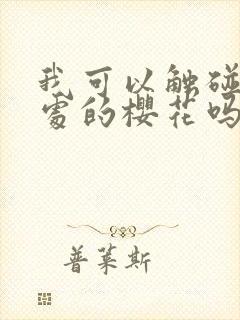 我可以触碰
处的樱花吗
普莱斯